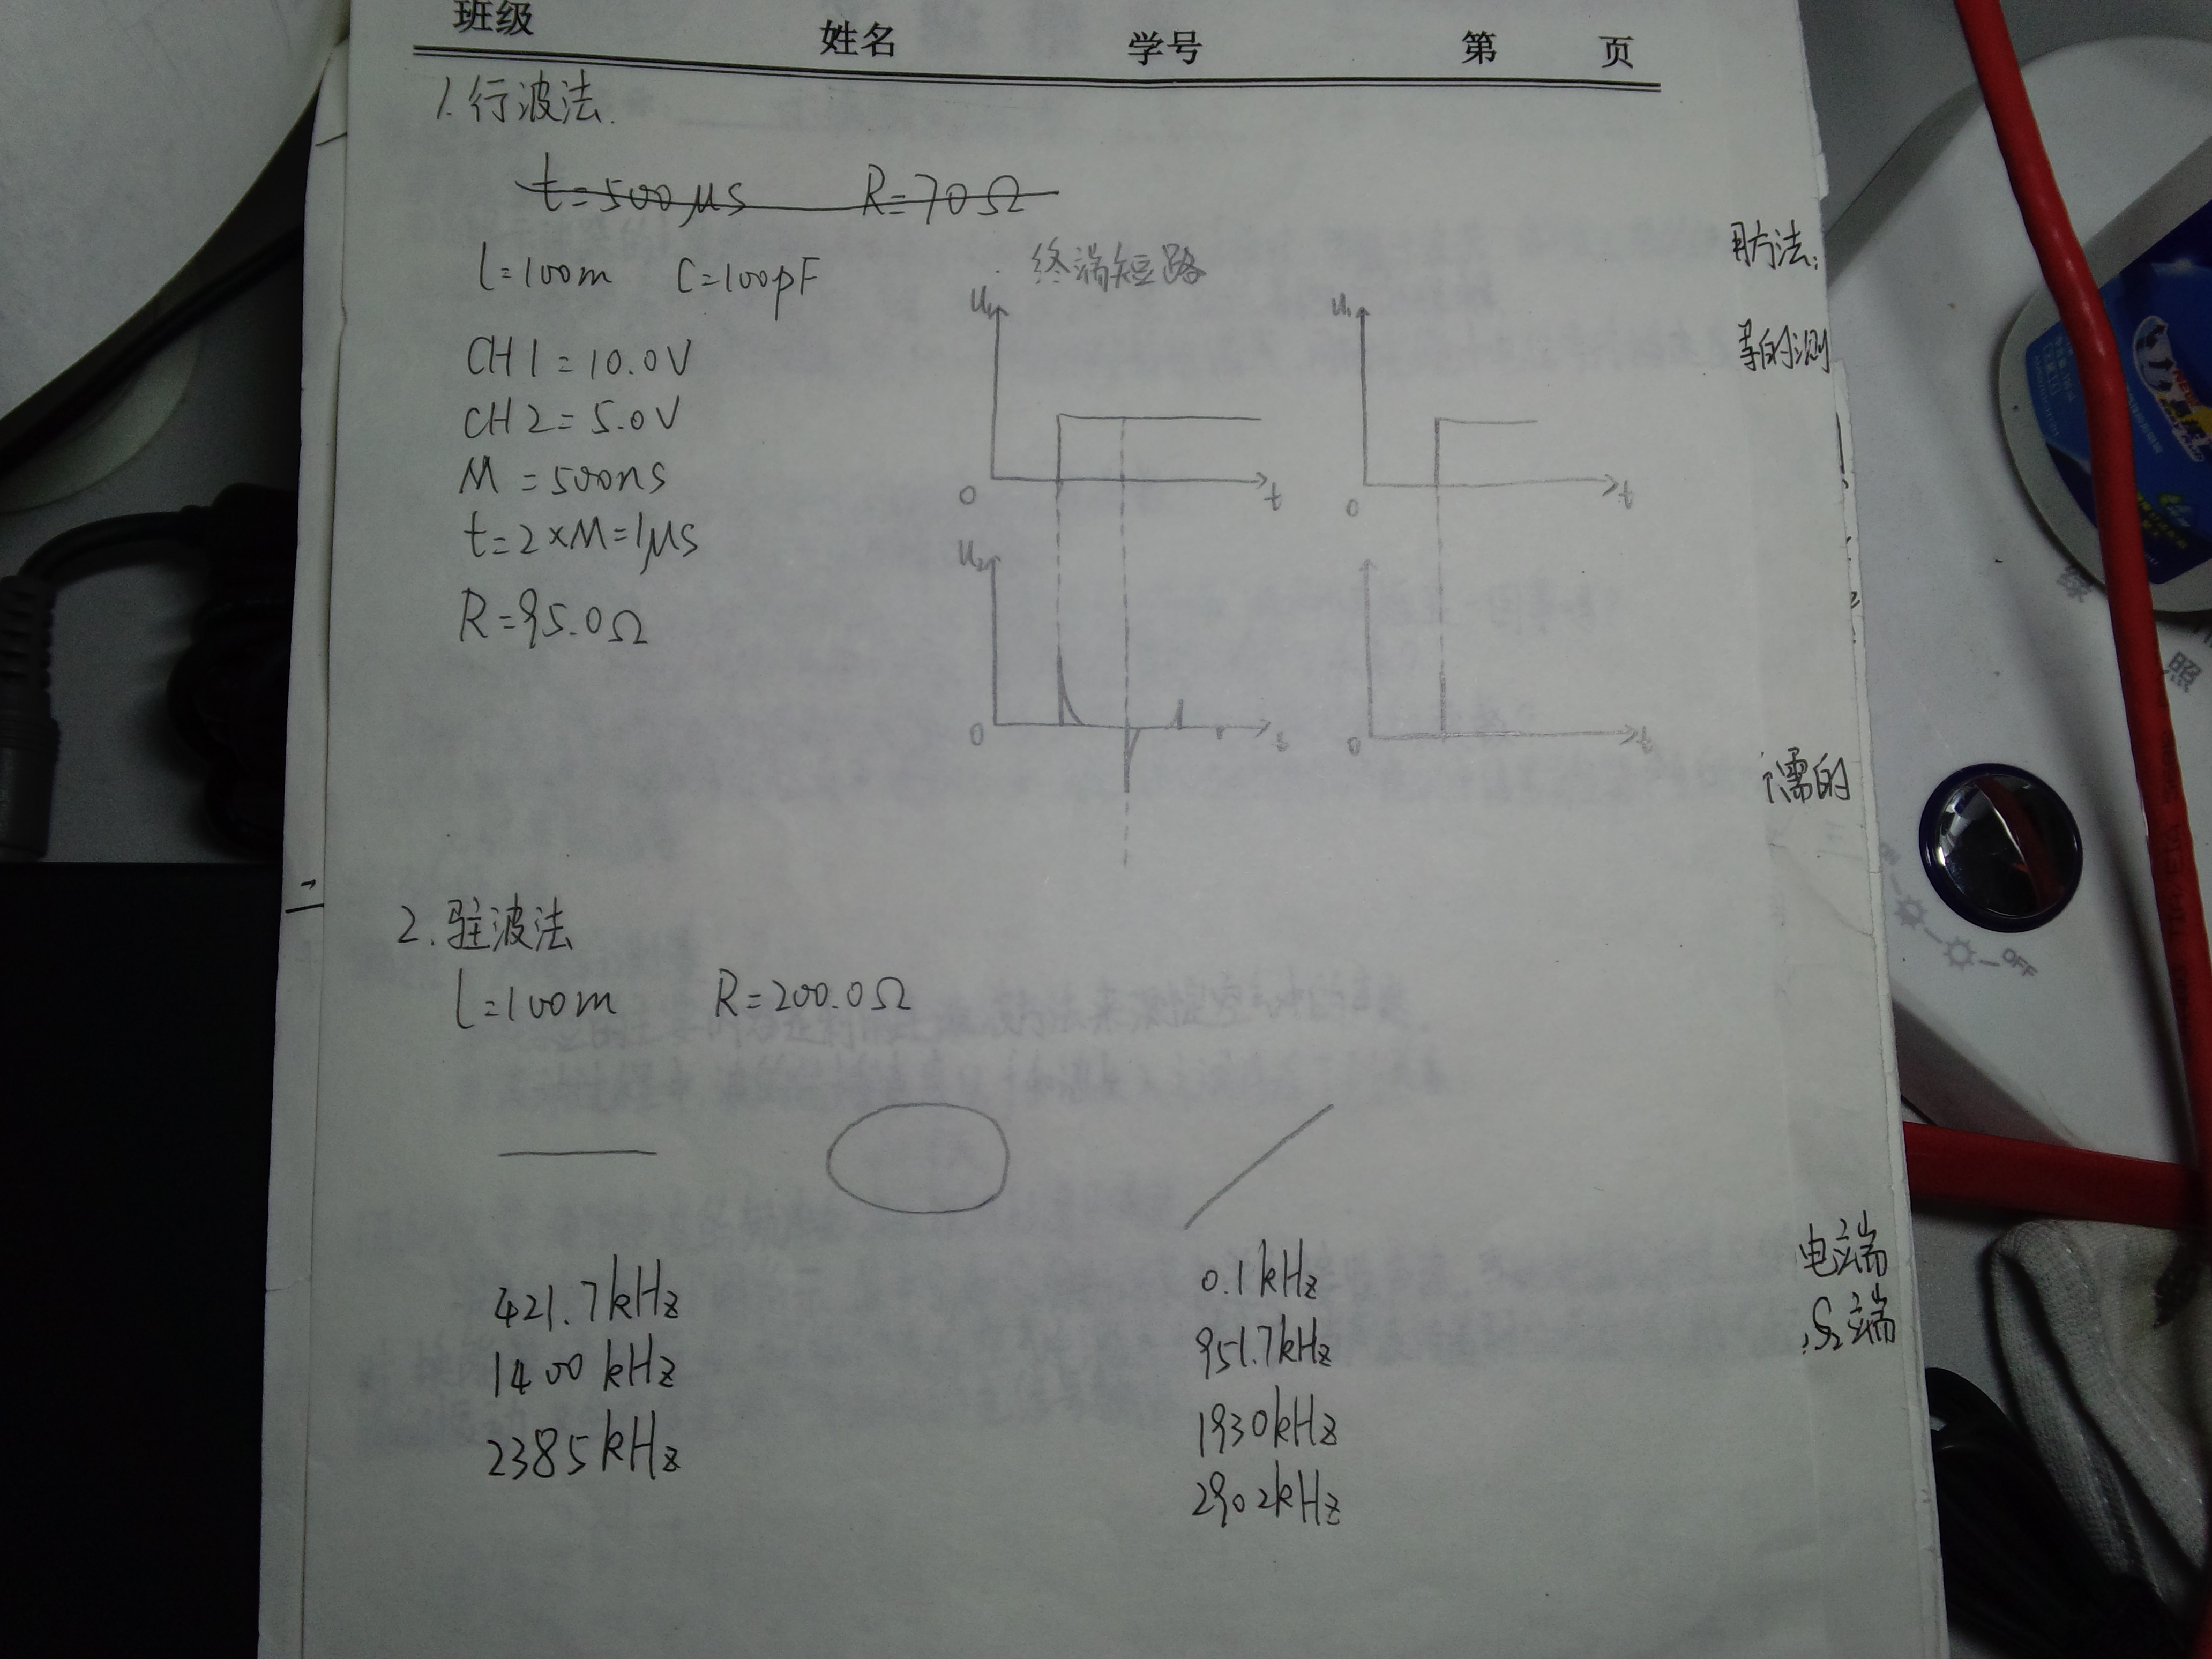 班级 姓名 学号 第 页
1.行波法.
t=500μs R=70Ω
l=100m C=100pF
CH1=10.0V
CH2=5.0V
M=500ns
t=2×M=1μs
R=95.0Ω
终端短路
U₁
0 t
U₁
0 t
U₂
0 t
0 t
2.驻波法
l=100m R=200.0Ω
421.7kHz
1400kHz
2385kHz
0.1kHz
951.7kHz
1930kHz
2902kHz
方法:
的测
需的
电端
S₂端
照
OFF